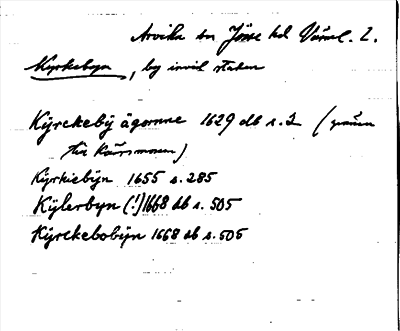 Arvika sn Jösse hd Värml. l.
Kyrkebyn, by invid staden
Kÿrckebÿ ägornne 1629 db s.2 (gränn
till Kärrsmossen)
Kÿrkiebÿn 1655 s.285
Kÿlerbyn (!) 1668 db s.505
Kÿrckebobÿn 1668 db s.505